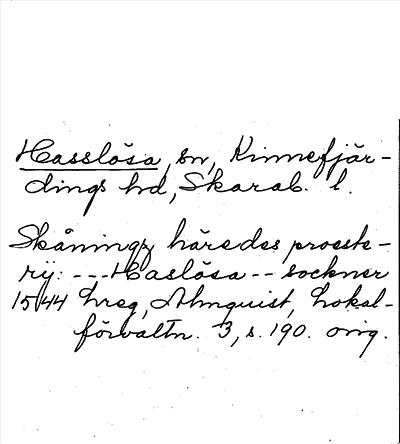 Hasslösa, sn, Kinnefjär-
dings hd, Skarab. l.
Skåningz häredes proeste-
rij: --- Haslösa -- sockner
1544 hreg, Almquist, Lokal-
förvaltn. 3, s. 190. orig.